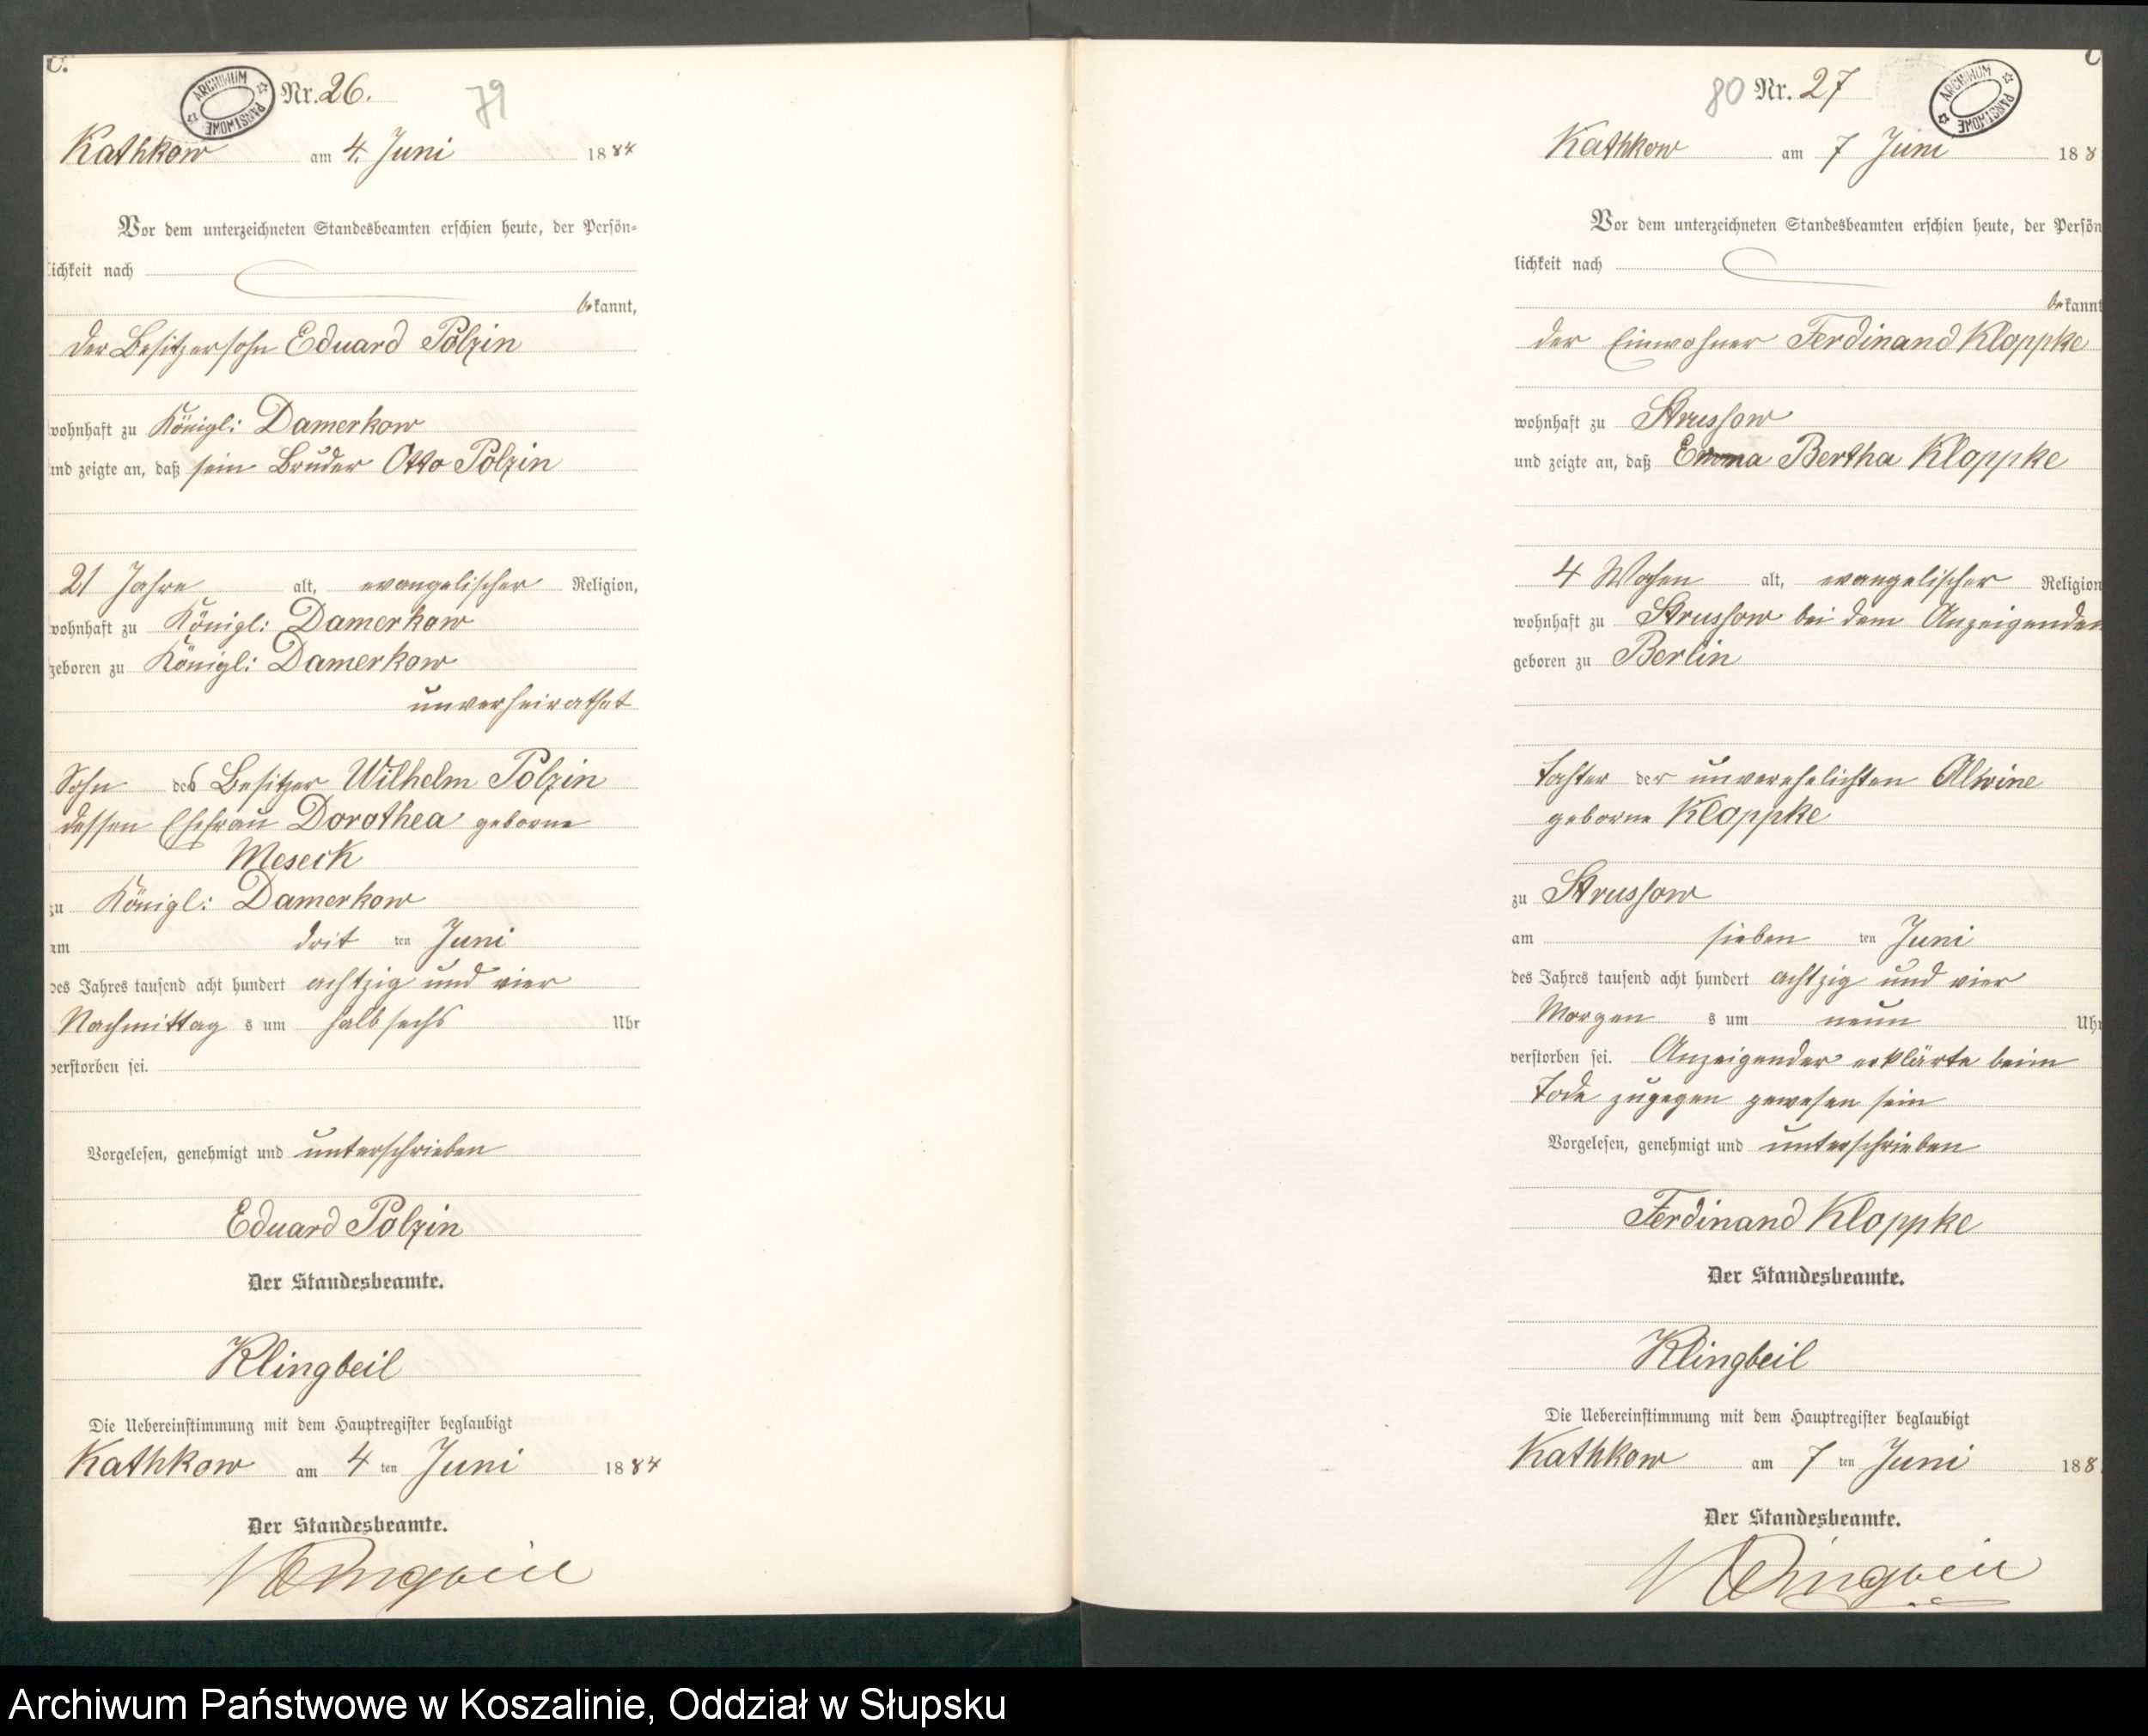 C.
ARCHIWUM PAŃSTWOWE
Nr. 26.
79
Kathkow am 4. Juni 1884
Vor dem unterzeichneten Standesbeamten erschien heute, der Persön-
lichkeit nach
bekannt,
der Besitzersohn Eduard Polzin
wohnhaft zu Königl: Damerkow
und zeigte an, daß sein Bruder Otto Polzin
21 Jahre alt, evangelischer Religion,
wohnhaft zu Königl: Damerkow
geboren zu Königl: Damerkow
unverheirathet
Sohn des Besitzer Wilhelm Polzin
dessen Ehefrau Dorothea geborne
Meseck
zu Königl: Damerkow
am drit ten Juni
des Jahres tausend acht hundert achtzig und vier
Nachmittag s um halb sechs Uhr
verstorben sei.
Vorgelesen, genehmigt und unterschrieben
Eduard Polzin
Der Standesbeamte.
Klingbeil
Die Uebereinstimmung mit dem Hauptregister beglaubigt
Kathkow am 4 ten Juni 1884
Der Standesbeamte.
Klingbeil
C
80 Nr. 27
ARCHIWUM PAŃSTWOWE
Kathkow am 7 Juni 188
Vor dem unterzeichneten Standesbeamten erschien heute, der Persön
lichkeit nach
bekannt
der Einwohner Ferdinand Kloppke
wohnhaft zu Strussow
und zeigte an, daß Emma Bertha Kloppke
4 Wochen alt, evangelischer Religion
wohnhaft zu Strussow bei dem Anzeigenden
geboren zu Berlin
Tochter der unverehelichten Alwine
geborne Kloppke
zu Strussow
am sieben ten Juni
des Jahres tausend acht hundert achtzig und vier
Morgen s um neun Uhr
verstorben sei. Anzeigender erklärte beim
Tode zugegen gewesen sein
Vorgelesen, genehmigt und unterschrieben
Ferdinand Kloppke
Der Standesbeamte.
Klingbeil
Die Uebereinstimmung mit dem Hauptregister beglaubigt
Kathkow am 7 ten Juni 188
Der Standesbeamte.
Klingbeil
Archiwum Państwowe w Koszalinie, Oddział w Słupsku